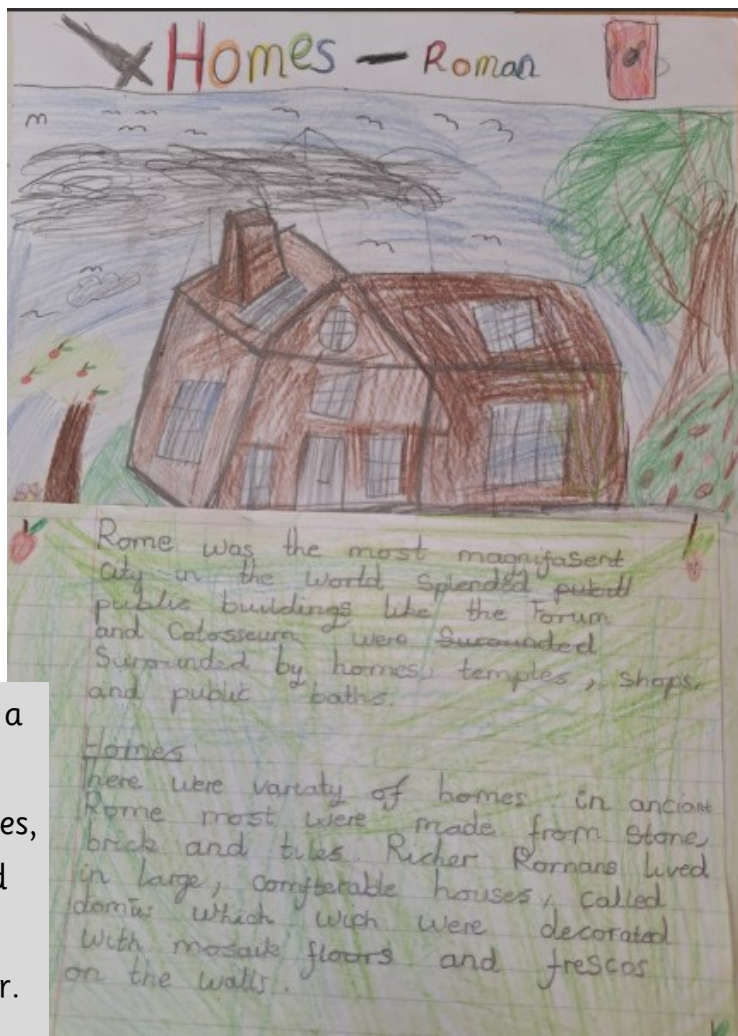 Homes - Roman
Rome was the most magnifasent
city in the world splended publl
public buildings like the Forum
and Colosseum were Surounded
Surounded by homes, temples, shops,
and public baths.
Homes
There were variaty of homes in anciant
Rome most were made from stone,
brick and tiles. Richer Romans lived
in large, comfterable houses, called
domus which wich were decorated
with mosaik floors and frescos
on the walls.
a
es,
d
r.